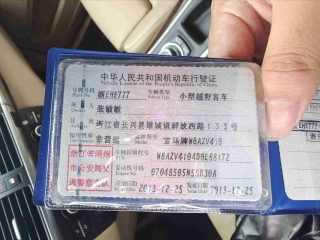 中华人民共和国机动车行驶证
Vehicle License of the People's Republic of China
号牌号码 浙EHE777 车辆类型 小型越野客车
所有人 张敏敏
住址 浙江省长兴县雉城镇解放西路135号
使用性质 非营运 品牌型号 宝马牌WBAZV410
浙江省湖州
市公安局交
通警察支队
车辆识别代号 WBAZV4104D0L68172
发动机号码 07048505N55B30A
注册日期 2013-12-25 发证日期 2013-12-25